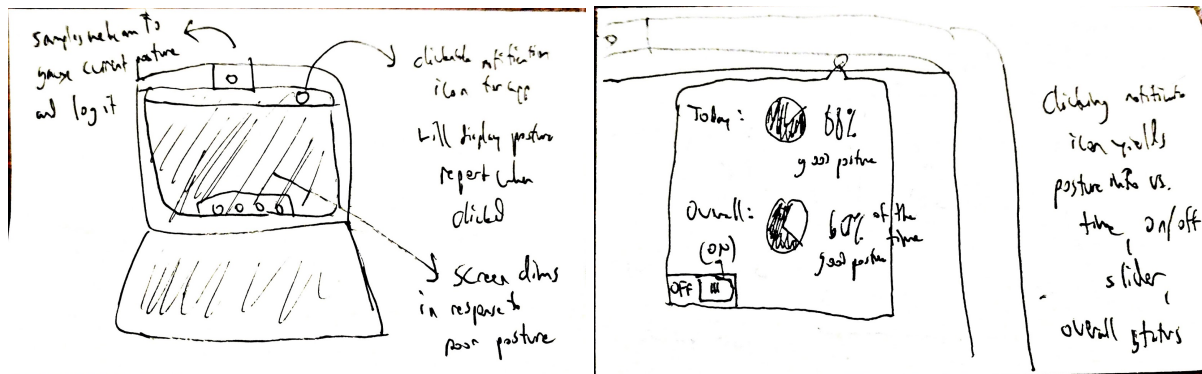 samples webcam to
gauge current posture
and log it
clickable notification
icon for app
will display posture
report when
clicked
screen dims
in response to
poor posture
Today: 88%
good posture
Overall: 60% of the time
good posture
(ON)
OFF
Clicking notification
icon yields
posture info vs.
time, on/off
slider,
overall status